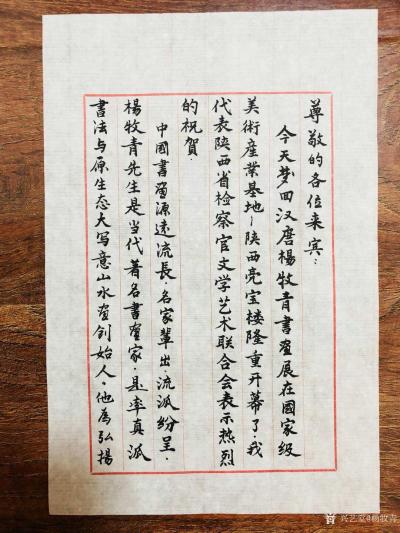 尊敬的各位来宾：
今天梦回汉唐楊牧青書畫展在國家级
美術産業基地－陕西亮宝楼隆重开幕了.我
代表陕西省检察官文学艺术联合会表示热烈
的祝賀.
中國書畫源遠流長.名家輩出.流派纷呈.
楊牧青先生是当代著名書画家.是率真派
書法与原生态大写意山水画创始人。他為弘揚
兴艺堂@杨牧青